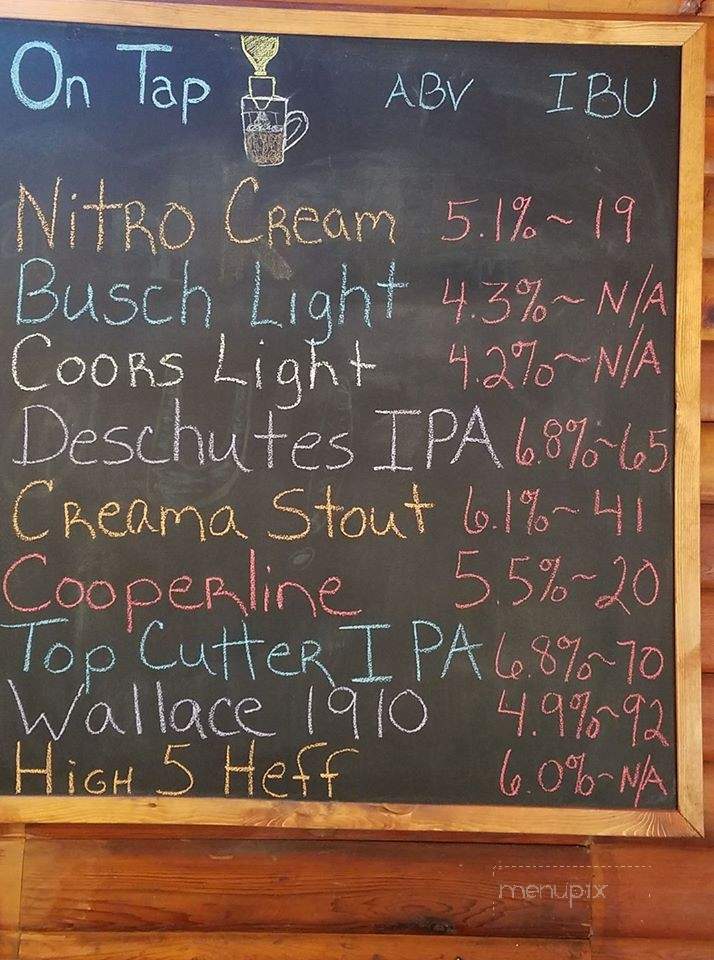 On Tap ABV IBU
Nitro Cream 5.1%~ 19
Busch Light 4.3%~ N/A
Coors Light 4.2%~N/A
Deschutes IPA 6.8%~65
Creama Stout 6.1%~ 41
Cooperline 5.5%~20
Top Cutter IPA 6.8%~70
Wallace 1910 4.9%~92
High 5 Heff 6.0%~N/A
menupix